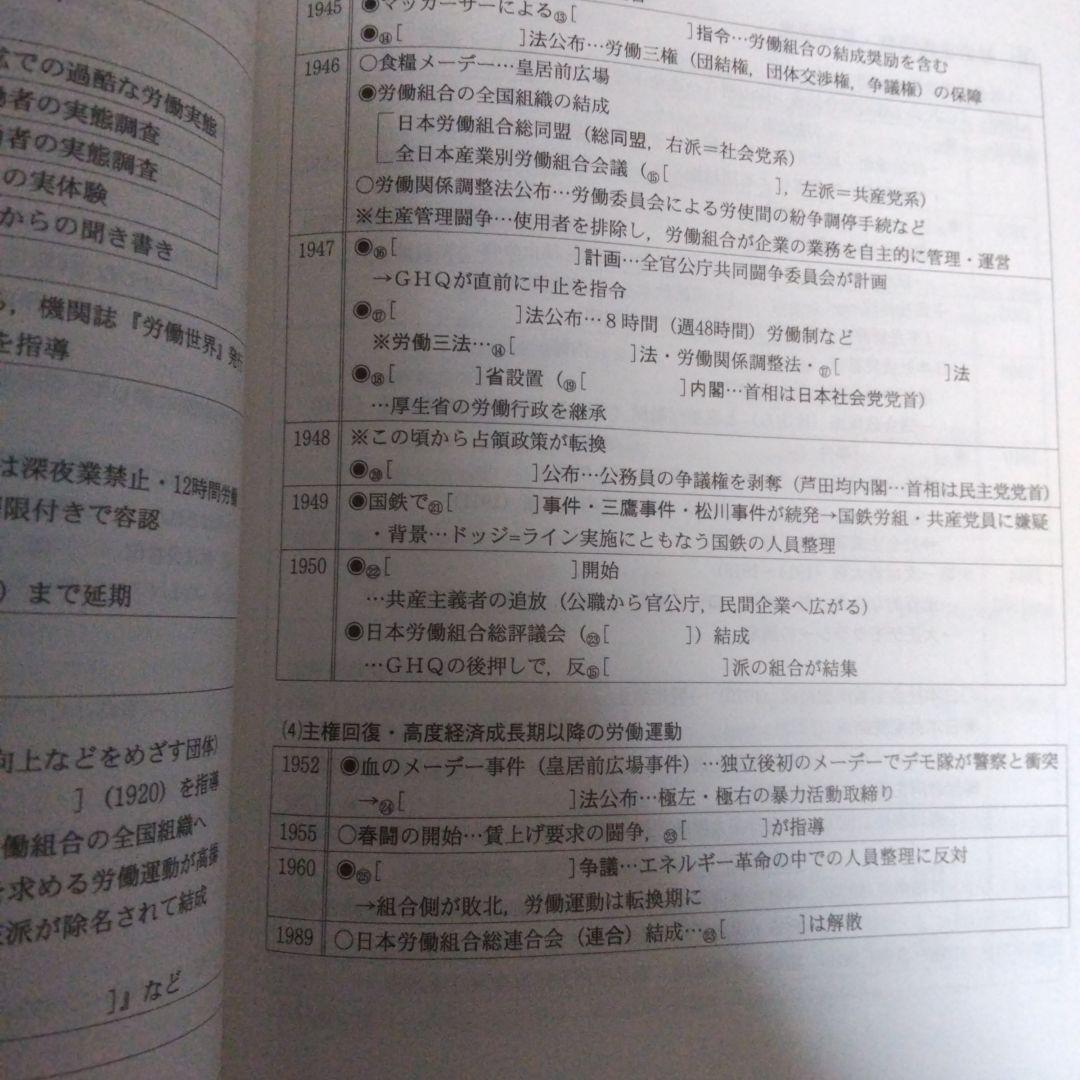 広での過酷な労働実態
働者の実態調査
働者の実態調査
の実体験
からの聞き書き
ら，機関誌『労働世界』発行
を指導
は深夜業禁止・12時間労働
限付きで容認
）まで延期
向上などをめざす団体）
］（1920）を指導
働組合の全国組織へ
を求める労働運動が高揚
派が除名されて結成
］』など
1945 ◉マッカーサーによる⑬［　　　］指令…労働組合の結成奨励を含む
◉⑭［　　　］法公布…労働三権（団結権，団体交渉権，争議権）の保障
1946 ○食糧メーデー…皇居前広場
◉労働組合の全国組織の結成
日本労働組合総同盟（総同盟，右派＝社会党系）
全日本産業別労働組合会議（⑮［　　　］，左派＝共産党系）
○労働関係調整法公布…労働委員会による労使間の紛争調停手続など
※生産管理闘争…使用者を排除し，労働組合が企業の業務を自主的に管理・運営
1947 ◉⑯［　　　］計画…全官公庁共同闘争委員会が計画
→GHQが直前に中止を指令
◉⑰［　　　］法公布…８時間（週48時間）労働制など
※労働三法…⑭［　　　］法・労働関係調整法・⑰［　　　］法
◉⑱［　　　］省設置（⑲［　　　］内閣…首相は日本社会党党首）
…厚生省の労働行政を継承
1948 ※この頃から占領政策が転換
◉⑳［　　　］公布…公務員の争議権を剥奪（芦田均内閣…首相は民主党党首）
1949 ◉国鉄で㉑［　　　］事件・三鷹事件・松川事件が続発→国鉄労組・共産党員に嫌疑
・背景…ドッジ=ライン実施にともなう国鉄の人員整理
1950 ◉㉒［　　　］開始
…共産主義者の追放（公職から官公庁，民間企業へ広がる）
◉日本労働組合総評議会（㉓［　　　］）結成
…GHQの後押しで，反⑮［　　　］派の組合が結集
(4)主権回復・高度経済成長期以降の労働運動
1952 ◉血のメーデー事件（皇居前広場事件）…独立後初のメーデーでデモ隊が警察と衝突
→㉔［　　　］法公布…極左・極右の暴力活動取締り
1955 ○春闘の開始…賃上げ要求の闘争，㉓［　　　］が指導
1960 ◉㉕［　　　］争議…エネルギー革命の中での人員整理に反対
→組合側が敗北，労働運動は転換期に
1989 ○日本労働組合総連合会（連合）結成…㉓［　　　］は解散